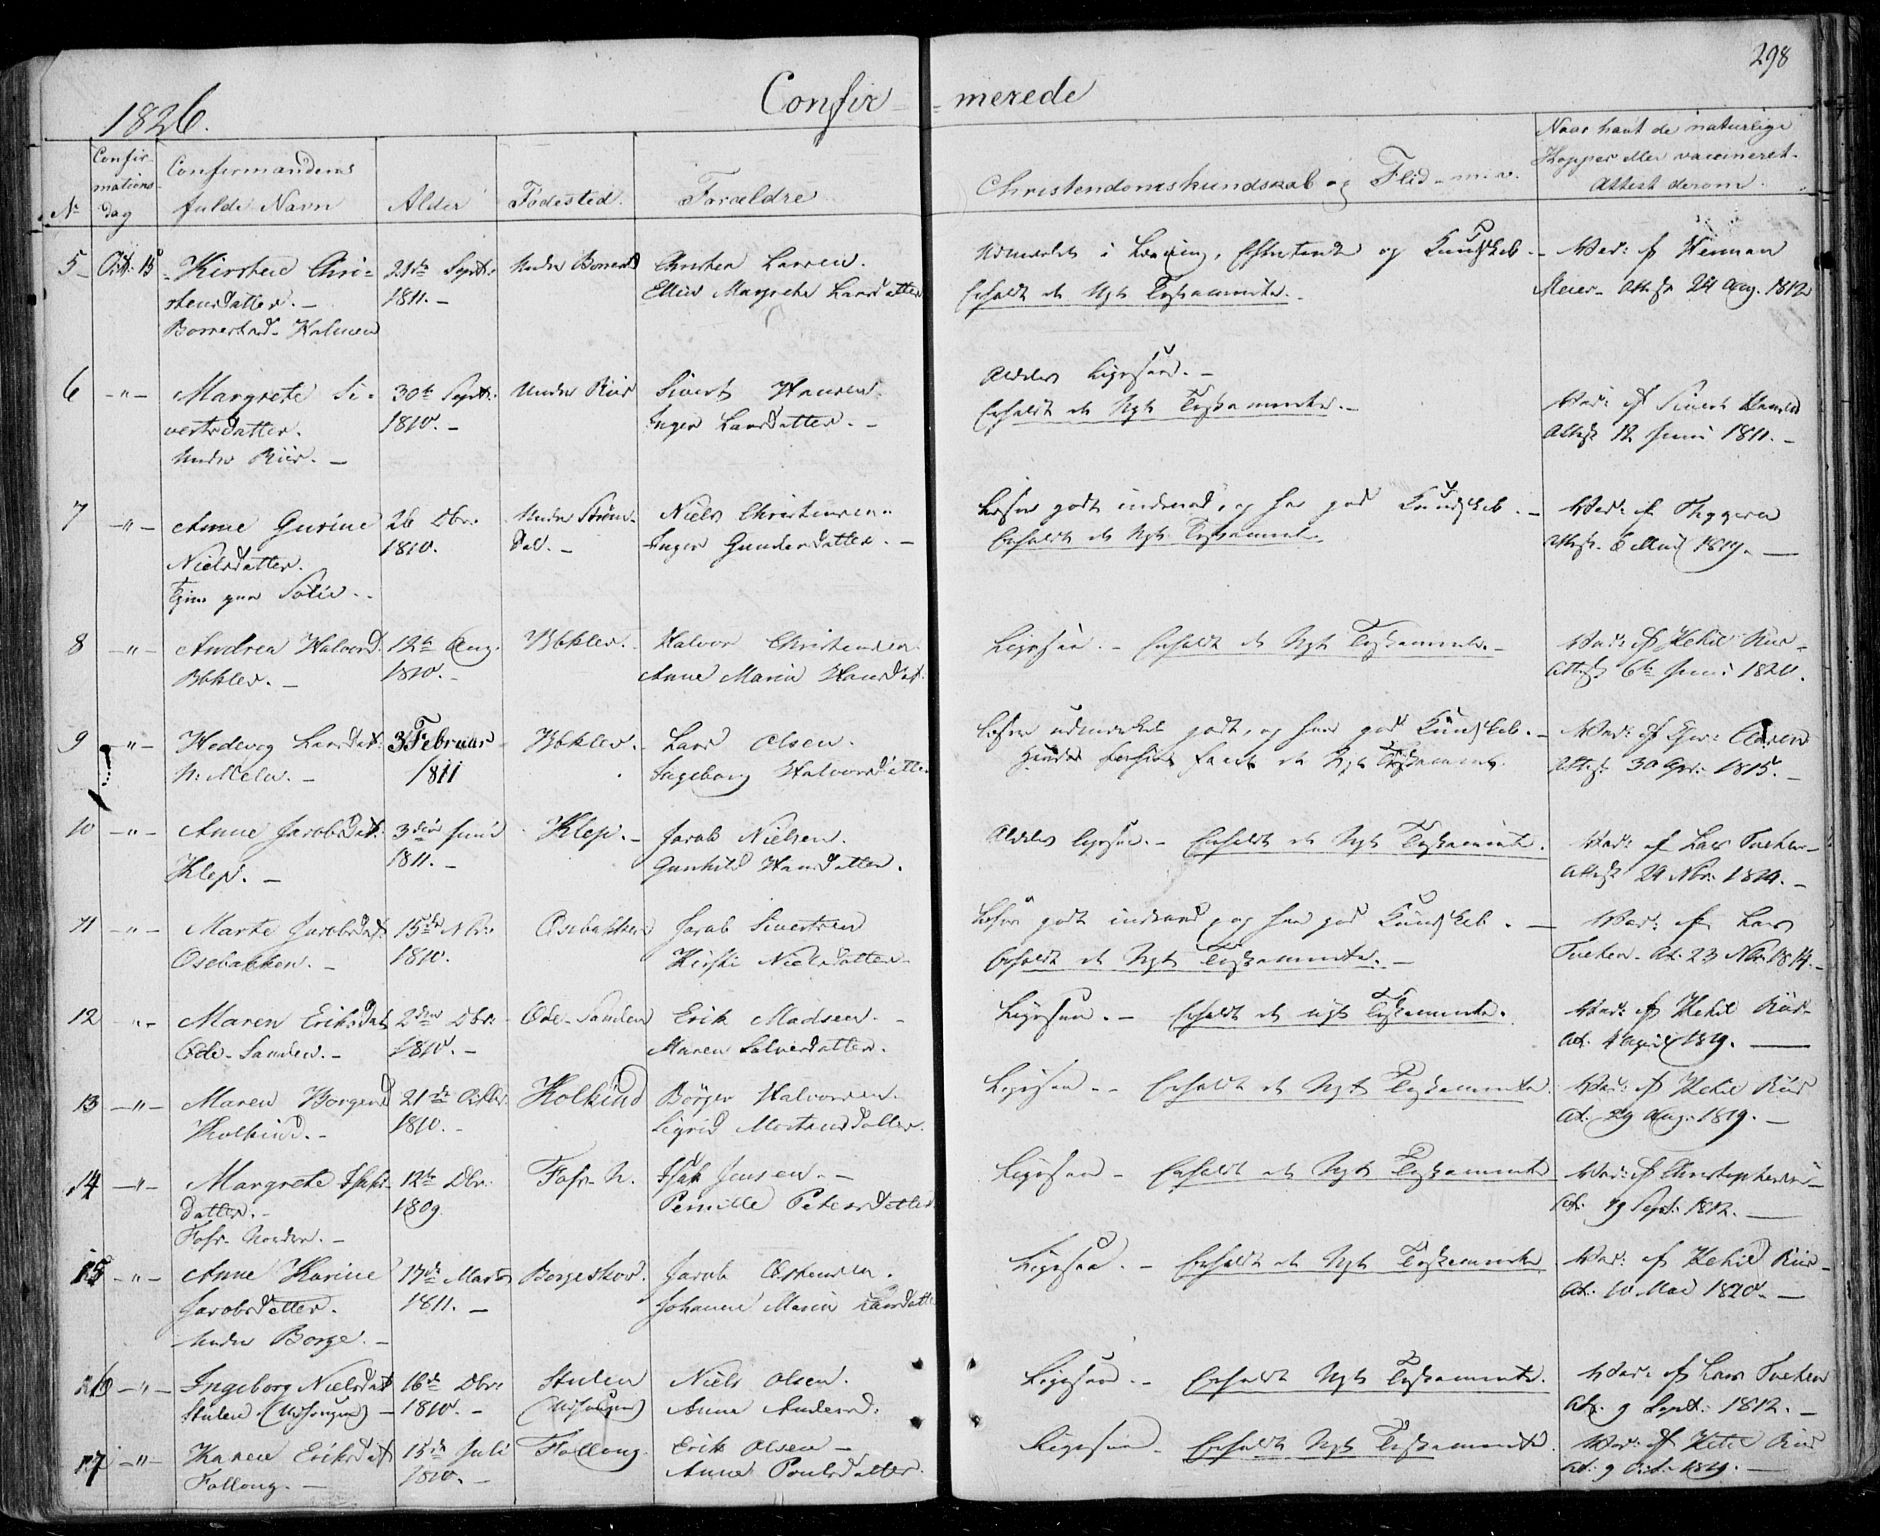 298
1826.
Confir-merede
No
Confir-
mations-
dag
Confirmandens
fulde Navn
Alder
Fødested.
Forældre
Christendomskundskab og Flid m. v.
Naar havt de naturlige
Kopper eller vaccineret.
Attest derom.
5 Oct: 15 Kirstene Chri-
stensdatter. -
Borrestad-Kalven
21de Septr:
1811. -
Nedre Borrestad
Christen Larsen.
Ellen Margrethe Larsdatter
Udmærket i Læsning, Eftertanke og Kundskab. -
Erholdt et Nyt Testamente.
Vac: af Herman
Meier- Attest 24 Aug. 1812
6 -"- Margrete Si-
vertsdatter.
Nedre Riis. -
30te Septr:
1810. -
Nedre Riis
Sivert Hansen.
Inger Larsdatter. -
Aldeles Ligesaa. -
Erholdt et Nyt Testamente. -
Vac: af Sivert Hansen
Attest 12 Juni 1811. -
7 -"- Anne Gurine
Nielsdatter.
26 Dbr:
1810.
Nedre Strøm-
dal. -
Niels Christensen.
Inger Gundersdatter. -
Læser godt indenad, og har god Kundskab. -
Erholdt et Nyt Testament.
Vac: af Thygesen
Attest. 6 Mai 1819. -
8 -"- Andrea Halvorsd.
Bökler. -
12te Aug.
1810. -
Bökler.
Halvor Christensen.
Anne Maria Hansdat.
Ligesaa. - Erholdt et Nyt Testamente. -
Vac: af Ketil Riis -
Attest 6te Juni 1820.
9 -"- Hedevig Larsdat:
N: Mela. -
3 Februar
1811
Bökler. -
Lars Olsen.
Ingeborg Halvorsdatter.
Læser udmærket godt, og har god Kundskab. -
et Nyt Testamente.
Attest 30 Apr: 1815. -
10 -"- Anne Jacobsdat:
Klep. -
3die Juni
1811. -
Klep. -
Jacob Nielsen.
Gunhild Hansdatter.
Aldeles ligesaa. - Erholdt et Nyt Testamente.
Vac: af Lars Tveten -
Attest 24 Nbr: 1814. -
11 -"- Marte Jacobsdat:
Osebakken. -
15de Nbr:
1810.
Osebakken
Jacob Sivertsen
Kirsti Nielsdatter.
Læser godt indenad, og har god Kundskab. -
Erholdt et Nyt Testamente. -
Vac: af Lars
Tveten. At. 23 Nbr: 1814. -
12 -"- Maren Eriksdat
Øde-Sanden. -
2den Dbr:
1810. -
Øde-Sanden
Erik Madsen. -
Maren Salvesdatter.
Ligesaa. - Erholdt et nyt Testamente.
Vac: af Ketil Riis -
At. 4 April 1819. -
13 -"- Maren Borgersd
Kolkind. -
21de Octbr.
1810. -
Kolkind
Börger Halvorsen.
Sigrid Mortensdatter.
Ligesaa. - Erholdt et Nyt Testamente.
Vac: af Ketil Riis
At. 29 Aug. 1819. -
14 -"- Margrete Isaks-
datter. -
Foss-Nordre. -
12te Dbr:
1809.
Foss-N.
Isak Jensen. -
Pernille Petersdatter.
Ligesaa - Erholdt et Nyt Testamente
Vac: af Christophersen -
At. 19 Sept: 1812. -
15 -"- Anne Karine
Jacobsdatter.
Nedre Borge. -
17de Marts
1811. -
Borgeskov.
Jacob
Johanne Maria Larsdatter
Ligesaa. - Erholdt et Nyt Testamente
Vac: af Ketil Riis -
At. 10 Mai 1820. -
16 -"- Ingeborg Nielsdat
Stulen
16de Dbr:
1810. -
Stulen
Niels Olsen.
Anne Andersd:
Ligesaa. - Erholdt Nyt Testamente.
Vac: af Lars Tveten
At. 9 Sept: 1812. -
17 -"- Karen Eriksdat
Follong. -
15de Juli
1810. -
Follong.
Erik Olsen -
Anne Poulsdatter.
Ligesaa - Erholdt Nyt Testamente.
Vac: af Ketil Riis
At: 9 Oct: 1819. -